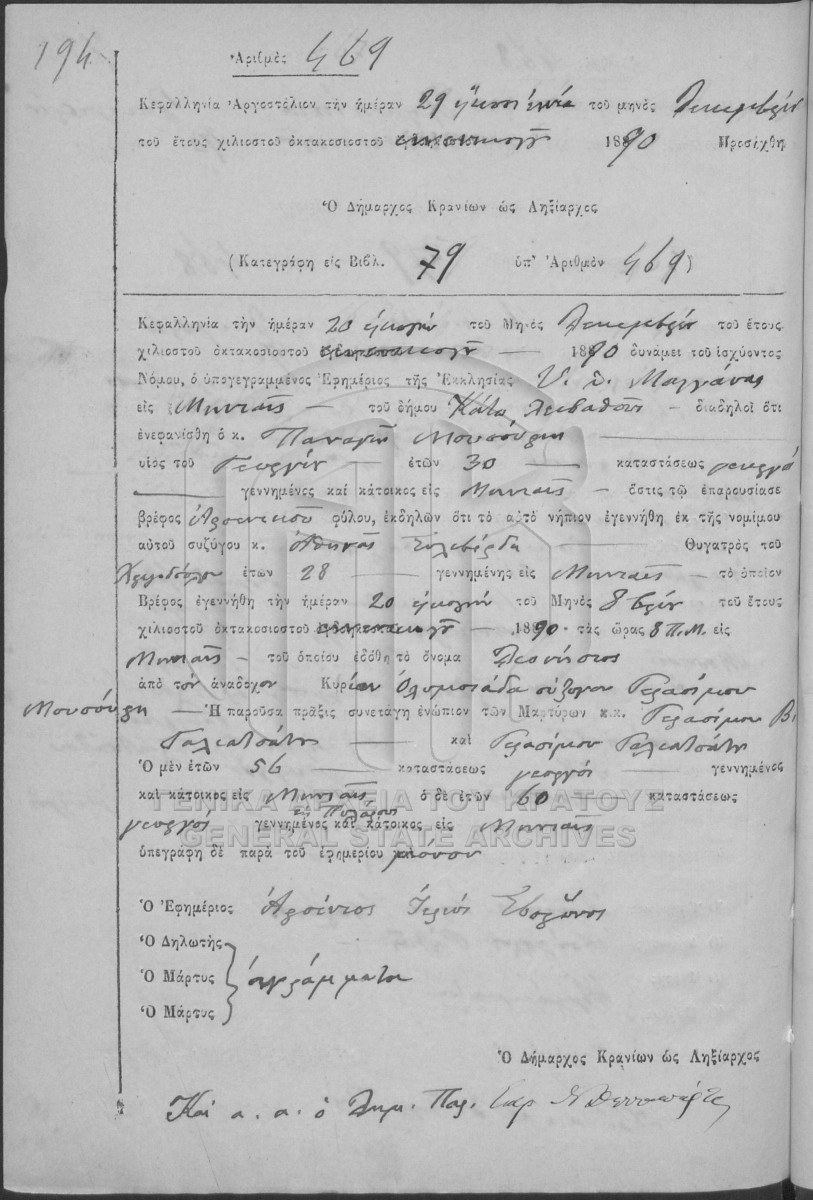 194
Ἀριθμὸς 469
Κεφαλληνία Ἀργοστόλιον τὴν ἡμέραν 29 εἴκοσι ἐννέα τοῦ μηνὸς Δεκεμβρίου
τοῦ ἔτους χιλιοστοῦ ὀκτακοσιοστοῦ ἐννενηκοστοῦ 1890 Προσήχθη
Ὁ Δήμαρχος Κρανίων ὡς Ληξίαρχος
(Κατεγράφη εἰς Βιβλ. 79 ὑπ' Ἀριθμὸν 469)
Κεφαλληνία τὴν ἡμέραν 20 εἰκοστὴν τοῦ Μηνὸς Δεκεμβρίου τοῦ ἔτους
χιλιοστοῦ ὀκτακοσιοστοῦ ἐννενηκοστοῦ — 1890 δυνάμει τοῦ ἰσχύοντος
Νόμου, ὁ ὑπογεγραμμένος Ἐφημέριος τῆς Ἐκκλησίας
εἰς Μηνιαῖς — τοῦ δήμου Κάτω Λειβαθοῦς — διαδηλοῖ ὅτι
ἐνεφανίσθη ὁ κ. Παναγῆς Μουσούρης
υἱὸς τοῦ Γεωργίου — ἐτῶν 30 — καταστάσεως γεωργὸς
— γεννημένος καὶ κάτοικος εἰς Μηνιαῖς — ὅστις τῷ ἐπαρουσίασε
βρέφος ἀρσενικοῦ φύλου, ἐκδηλῶν ὅτι τὸ αὐτὸ νήπιον ἐγεννήθη ἐκ τῆς νομίμου
αὐτοῦ συζύγου κ. Ἀθηνᾶς — Θυγατρὸς τοῦ
ἐτῶν 28 — γεννημένης εἰς Μηνιαῖς — τὸ ὁποῖον
Βρέφος ἐγεννήθη τὴν ἡμέραν 20 εἰκοστὴν τοῦ Μηνὸς 8βρίου τοῦ ἔτους
χιλιοστοῦ ὀκτακοσιοστοῦ ἐννενηκοστοῦ — 1890. τὰς ὥρας 8 Π.Μ. εἰς
Μηνιαῖς — τοῦ ὁποίου ἐδόθη τὸ ὄνομα Διονύσιος
ἀπὸ τὸν ἀνάδοχον Κυρίαν Ὀλυμπιάδα σύζυγον Γερασίμου
Μουσούρη — Ἡ παροῦσα πρᾶξις συνετάγη ἐνώπιον τῶν Μαρτύρων κ.κ. Γερασίμου Β.
Γαλιατσάτη — καὶ Γερασίμου Γαλιατσάτη
Ὁ μὲν ἐτῶν 56 — καταστάσεως γεωργὸς — γεννημένος
καὶ κάτοικος εἰς Μηνιαῖς ὁ δὲ ἐτῶν 60 — καταστάσεως
εἰς Πυλάρου
γεωργὸς γεννημένος καὶ κάτοικος εἰς Μηνιαῖς
ὑπεγράφη δὲ παρὰ τοῦ ἐφημερίου μόνον
ΓΕΝΙΚΑ ΑΡΧΕΙΑ ΤΟΥ ΚΡΑΤΟΥΣ
GENERAL STATE ARCHIVES
Ὁ Ἐφημέριος Ἀρσένιος Ἱερεὺς
Ὁ Δηλωτὴς
Ὁ Μάρτυς ἀγράμματοι
Ὁ Μάρτυς
Ὁ Δήμαρχος Κρανίων ὡς Ληξίαρχος
Καὶ α. α. ὁ Δημ. Παρ.